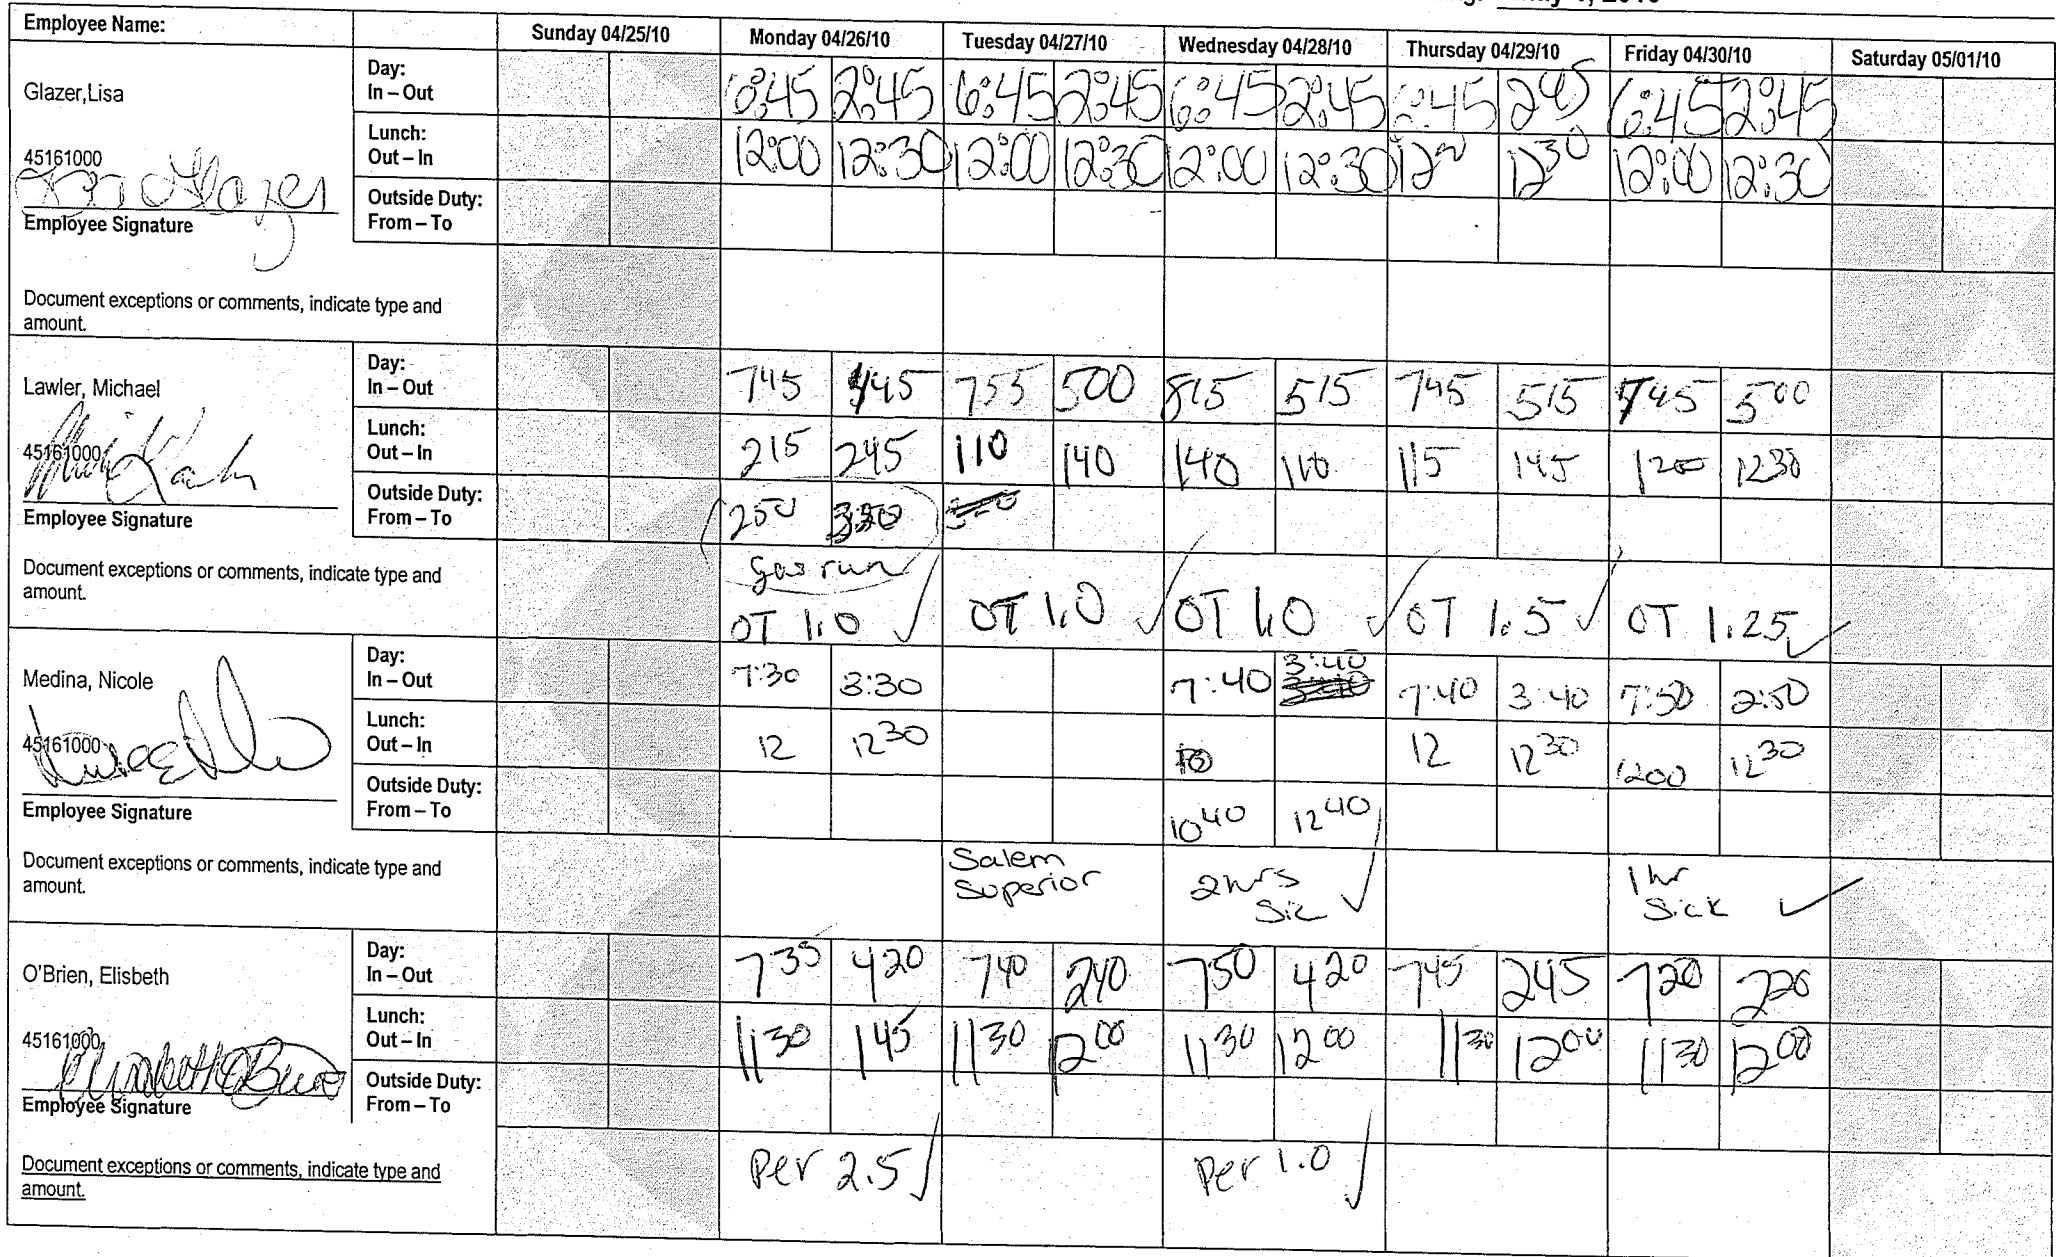 1, 2010
Employee Name:
Sunday 04/25/10 Monday 04/26/10 Tuesday 04/27/10 Wednesday 04/28/10 Thursday 04/29/10 Friday 04/30/10 Saturday 05/01/10
Glazer,Lisa
Day:
In – Out
6:45 2:45 6:45 2:45 6:45 2:45 6:45 2 45 6:45 2:45
45161000
Lunch:
Out – In
12:00 12:30 12:00 12:30 12:00 12:30 12 00 12 30 12:00 12:30
Lisa Glazer
Employee Signature
Outside Duty:
From – To
Document exceptions or comments, indicate type and
amount.
Lawler, Michael
Day:
In – Out
745 445 755 500 815 515 745 515 745 5 00
45161000
Lunch:
Out – In
215 245 110 140 140 110 115 145 1200 1230
Employee Signature
Outside Duty:
From – To
250
gas run
Document exceptions or comments, indicate type and
amount.
OT 1.0 OT 1.0 OT 1.0 OT 1.5 OT 1.25
Medina, Nicole
Day:
In – Out
7:30 3:30 7:40 3:40 7:40 3:40 7:50 2:50
45161000
Lunch:
Out – In
12 12 30 12 12 30 1200 12 30
Employee Signature
Outside Duty:
From – To
10 40 12 40
Document exceptions or comments, indicate type and
amount.
Salem
Superior
2 hrs
Sic
1 hr
Sick
O'Brien, Elisbeth
Day:
In – Out
7 35 4 20 7 40 240 750 4 20 745 245 720 220
45161000
Lunch:
Out – In
11 30 1 45 11 30 12 00 11 30 12 00 11 30 12 00 11 30 12 00
Elisabeth O'Brien
Employee Signature
Outside Duty:
From – To
Document exceptions or comments, indicate type and
amount.
Per 2.5 Per 1.0